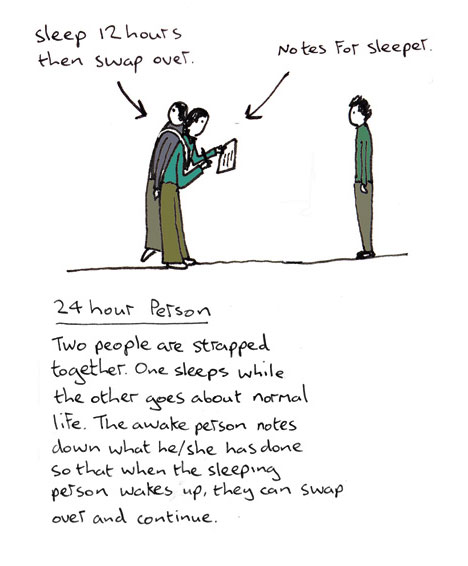 sleep 12 hours
then swap over.
Notes for sleeper.
24 hour Person
Two people are strapped
together. One sleeps while
the other goes about normal
life. The awake person notes
down what he/she has done
so that when the sleeping
person wakes up, they can swap
over and continue.